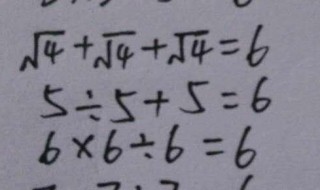 √4+√4+√4=6
5÷5+5=6
6×6÷6=6